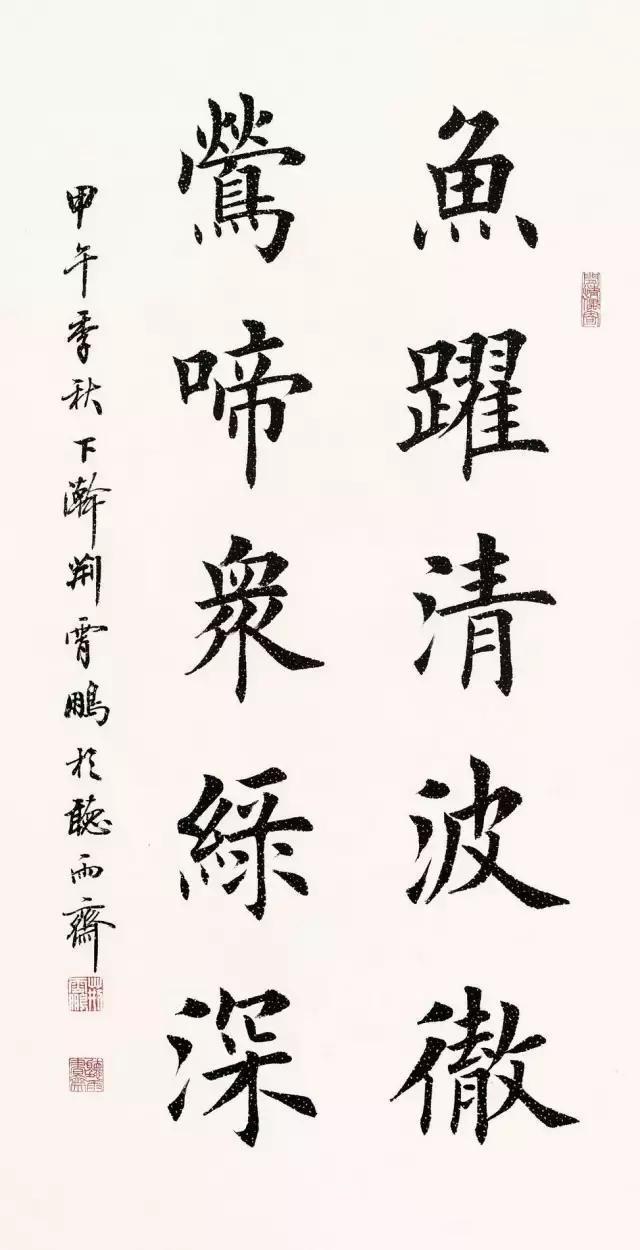 魚躍清波徹
鶯啼衆綠深
甲午季秋下澣荆霄鵬於聽雨齋